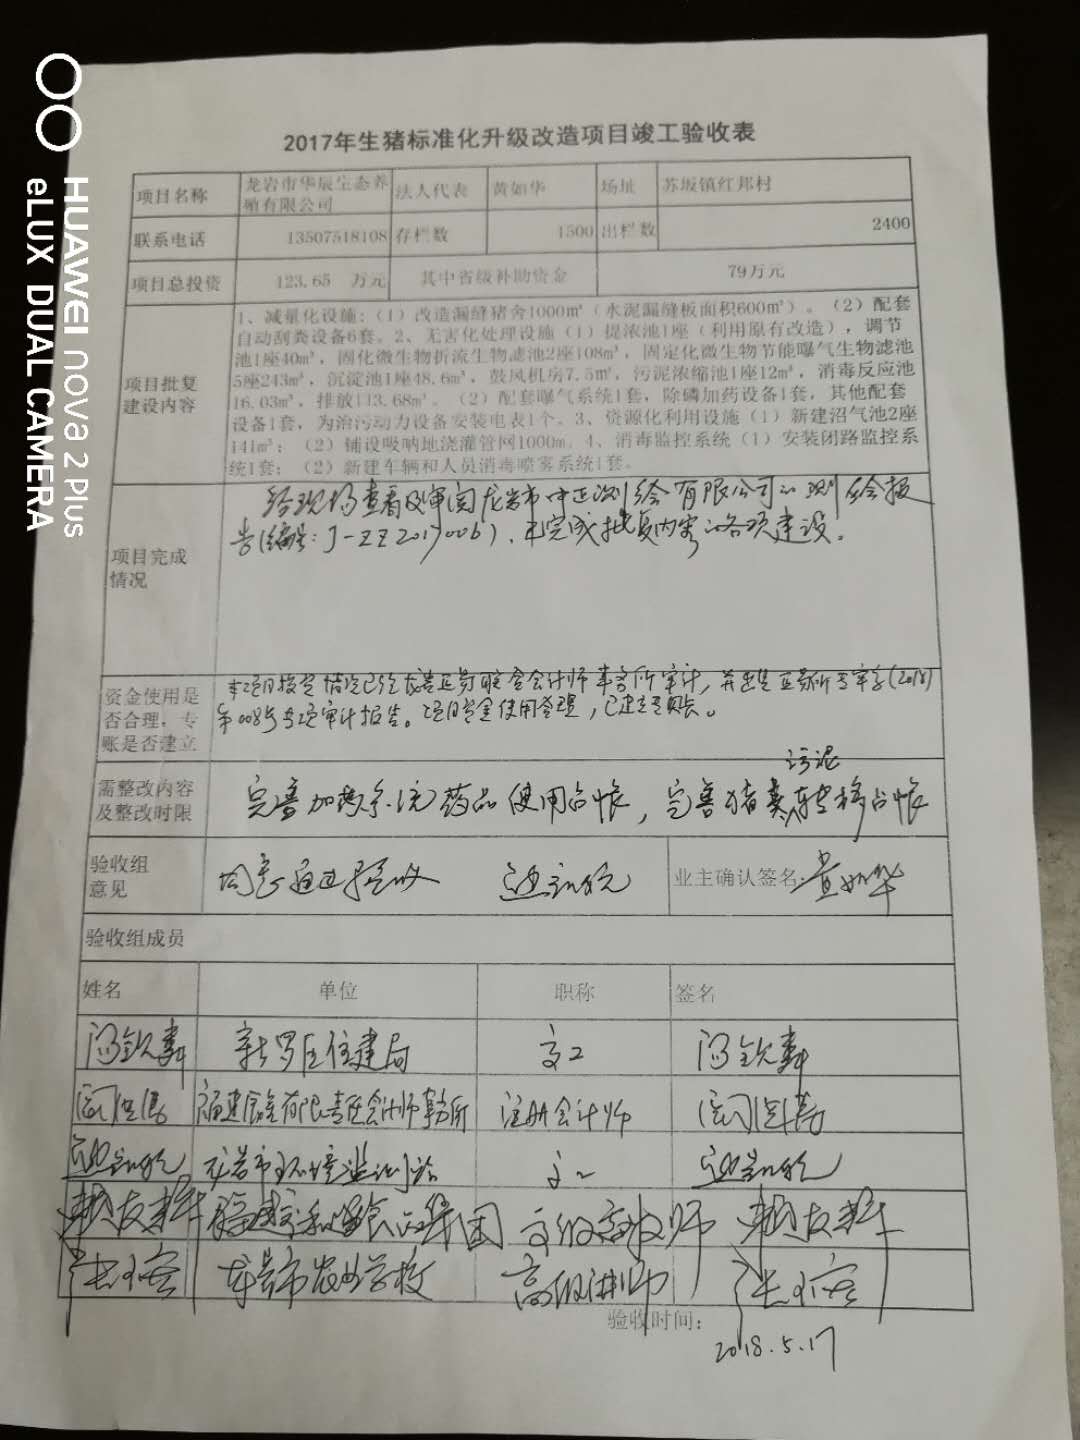 2017年生猪标准化升级改造项目竣工验收表
项目名称 龙岩市华辰生态养殖有限公司 法人代表 黄如华 场址 苏坂镇红邦村
联系电话 13507518108 存栏数 1500 出栏数 2400
项目总投资 123.65 万元 其中省级补助资金 79万元
项目批复建设内容
1、减量化设施：（1）改造漏缝猪舍1000㎡（水泥漏缝板面积600㎡）。（2）配套
自动刮粪设备6套。2、无害化处理设施（1）提浓池1座（利用原有改造），调节
池1座40m³，固化微生物折流生物滤池2座108m³，固定化微生物节能曝气生物滤池
5座243m³，沉淀池1座48.6m³，鼓风机房7.5㎡，污泥浓缩池1座12m³，消毒反应池
16.03m³，排放口3.68m³。（2）配套曝气系统1套，除磷加药设备1套，其他配套
设备1套，为治污动力设备安装电表1个。3、资源化利用设施（1）新建沼气池2座
141m³；（2）铺设吸呐地浇灌管网1000m。4、消毒监控系统（1）安装闭路监控系
统1套；（2）新建车辆和人员消毒喷雾系统1套。
项目完成情况
经现场查看及审阅龙岩市中正测绘有限公司的测绘报
告（编号：J-ZZ2017006），已完成批复内容的各项建设。
资金使用是否合理，专账是否建立
本项目投资情况已经龙岩正勤联合会计师事务所审计，并出具正勤所专审字(2018)
第008号专项审计报告。项目资金使用合理，已建立专账。
需整改内容及整改时限
污泥
完善加药系统药品使用台帐，完善猪粪、转移台帐
验收组意见 同意通过验收 业主确认签名：黄如华
验收组成员
姓名 单位 职称 签名
新罗区住建局 高工
注册会计师
龙岩市环境监测站 高工
赖友辉 赖友辉
龙岩市农业学校 高级讲师
验收时间：
2018.5.17
HUAWEI nova 2 Plus
eLUX DUAL CAMERA